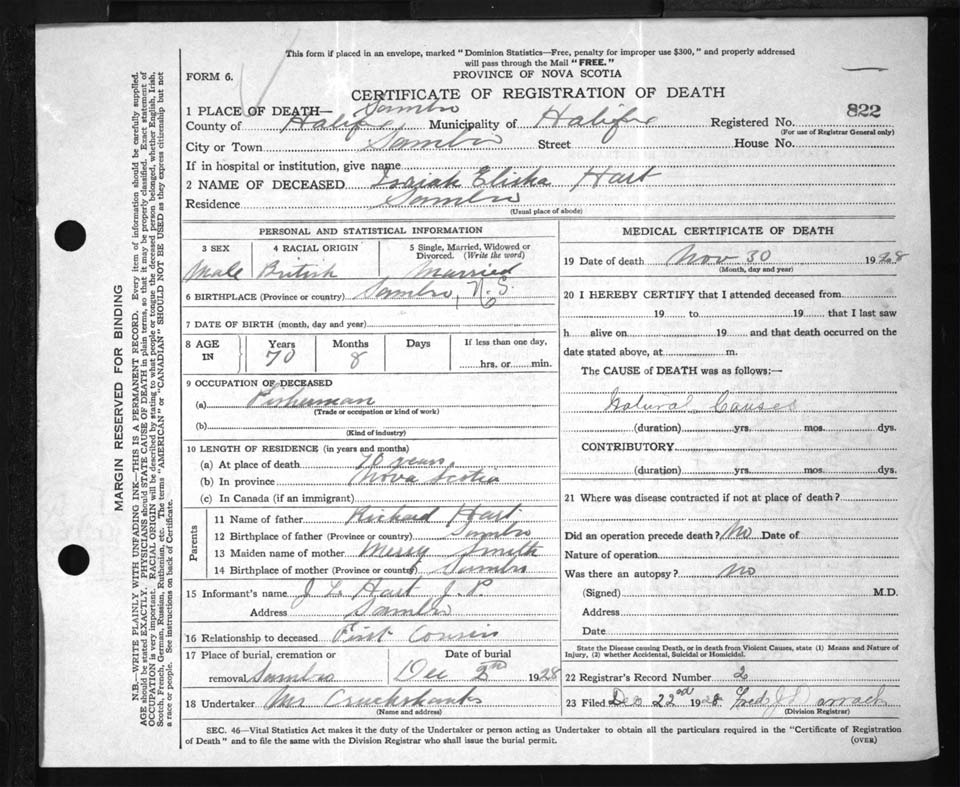 This form if placed in an envelope, marked "Dominion Statistics—Free, penalty for improper use $300," and properly addressed
will pass through the Mail "FREE."
FORM 6.
PROVINCE OF NOVA SCOTIA
CERTIFICATE OF REGISTRATION OF DEATH
1 PLACE OF DEATH— Sambro
822
County of Halifax Municipality of Halifax Registered No.
(For use of Registrar General only)
City or Town Sambro Street House No.
If in hospital or institution, give name
2 NAME OF DECEASED Isaiah Elisha Hart
Residence Sambro
(Usual place of abode)
PERSONAL AND STATISTICAL INFORMATION
3 SEX 4 RACIAL ORIGIN 5 Single, Married, Widowed or
Divorced. (Write the word)
Male British Married
6 BIRTHPLACE (Province or country) Sambro, N.S.
7 DATE OF BIRTH (month, day and year)
8 AGE Years Months Days If less than one day,
IN 70 8 hrs. or min.
9 OCCUPATION OF DECEASED
(a) Fisherman
(Trade or occupation or kind of work)
(b)
(Kind of industry)
10 LENGTH OF RESIDENCE (in years and months)
(a) At place of death 70 years
(b) In province Nova Scotia
(c) In Canada (if an immigrant)
Parents
11 Name of father Richard Hart
12 Birthplace of father (Province or country) Sambro
13 Maiden name of mother Mercy Smith
14 Birthplace of mother (Province or country) Sambro
15 Informant's name J L Hart J.P.
Address Sambro
16 Relationship to deceased First Cousin
17 Place of burial, cremation or Date of burial
removal Sambro Dec 2nd 1928
18 Undertaker Mr Cruickshanks
(Name and address)
MEDICAL CERTIFICATE OF DEATH
19 Date of death Nov 30 1928
(Month, day and year)
20 I HEREBY CERTIFY that I attended deceased from
19 to 19 that I last saw
h alive on 19 and that death occurred on the
date stated above, at m.
The CAUSE of DEATH was as follows:—
Natural Causes
(duration) yrs. mos. dys.
CONTRIBUTORY
(duration) yrs. mos. dys.
21 Where was disease contracted if not at place of death?
Did an operation precede death? No Date of
Nature of operation
Was there an autopsy? No
(Signed) M.D.
Address
Date
State the Disease causing Death, or in death from Violent Causes, state (1) Means and Nature of
Injury, (2) whether Accidental, Suicidal or Homicidal.
22 Registrar's Record Number 2
23 Filed Dec 22nd 1928 Fred J Darrach
(Division Registrar)
SEC. 46—Vital Statistics Act makes it the duty of the Undertaker or person acting as Undertaker to obtain all the particulars required in the "Certificate of Registration
of Death" and to file the same with the Division Registrar who shall issue the burial permit.
(OVER)
MARGIN RESERVED FOR BINDING
N.B.—WRITE PLAINLY WITH UNFADING INK—THIS IS A PERMANENT RECORD. Every item of information should be carefully supplied.
AGE should be stated EXACTLY. PHYSICIANS should STATE CAUSE OF DEATH in plain terms, so that it may be properly classified. Exact statement of
OCCUPATION is very important. RACIAL ORIGIN will be described by stating to what people or tongue the deceased person belonged, whether English, Irish,
Scotch, French, German, Russian, Ruthenian, etc. The terms "AMERICAN" or "CANADIAN" SHOULD NOT BE USED as they express citizenship but not
a race or people. See instructions on back of Certificate.